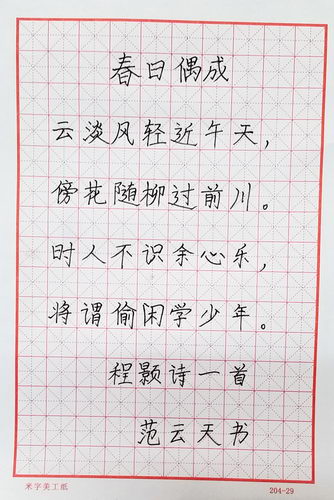 春日偶成
云淡风轻近午天，
傍花随柳过前川。
时人不识余心乐，
将谓偷闲学少年。
程颢诗一首
范云天书
米字美工纸
204-29